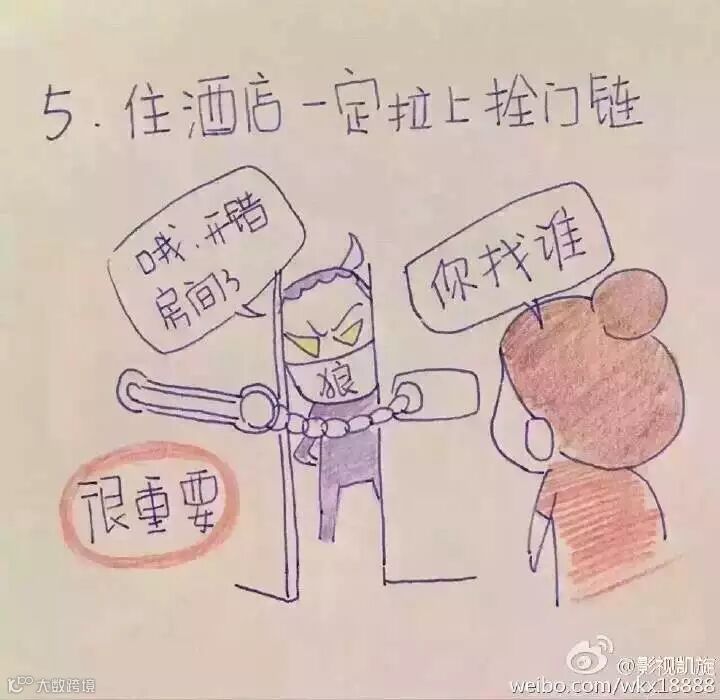 5. 住酒店一定拉上拴门链
哦,开错
房间了
你找谁
狼
很重要
大数跨境
@影视凯旋
weibo.com/wkx18888